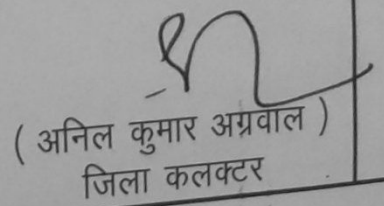 ( अनिल कुमार अग्रवाल )
जिला कलक्टर